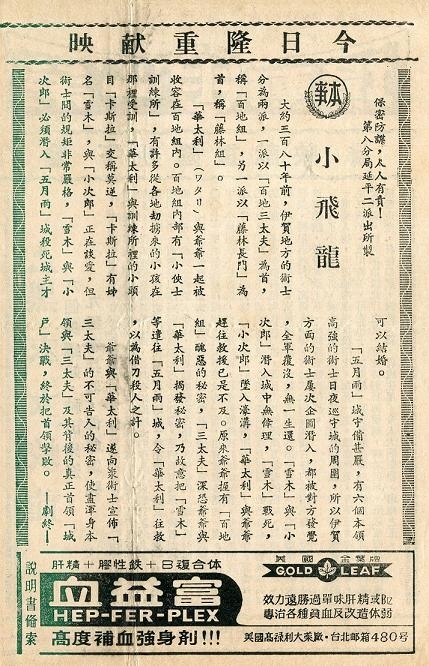 今日隆重獻映
保密防諜,人人有責!
第八分局延平二派出所製
本事
小飛龍
大約三百八十年前,伊賀地方的術士
分為兩派,一派以「百地三太夫」為首,
稱「百地組」,另一派以「藤林長門」為
首,稱「藤林組」。
「華太利」(ワタリ)與爺爺一起被
收容在百地組內。百地組內部有「小使士
訓練所」,有許多從各地劫擄來的小孩在
那裡受訓,「華太利」與訓練所裡的小頭
目「卡斯拉」交稱莫逆,「卡斯拉」有姊
名「雪木」,與「小次郎」正在談愛,但
術士間的規矩非常嚴格,「雪木」與「小
次郎」必須潛入「五月雨」城殺死城主才
可以結婚。
「五月雨」城守備甚嚴,有六個本領
高強的術士日夜巡守城的周圍,所以伊賀
方面的術士屢次企圖潛入,都被對方發覺
,全軍覆沒,無一生還。「雪木」與「小
次郎」潛入城中無條理,「雪木」戰死,
「小次郎」墜入濠溝,「華太利」與爺爺
趕往救援已是不及。原來爺爺握有「百地
組」醜惡的秘密,「三太夫」深恐爺爺與
「華太利」揭發秘密,乃故意把「雪木」
等遣往「五月雨」城,令「華太利」往救
,以為借刀殺人之計。
爺爺與「華太利」遂向衆術士宣佈「
三太夫」的不可告人的秘密,使盡渾身本
領與「三太夫」及其背後的真正首領「城
戶」決戰,終於把首領擊敗。 —劇終—
說明書備索
肝精+膠性鉄+B復合体
血益富
HEP-FER-PLEX
高度補血強身剤!!!
美國 金葉牌
GOLD LEAF
效力遠勝過單味肝精或B12
專治各種貧血反改造体弱
美國高祿利大藥廠·台北郵箱480号